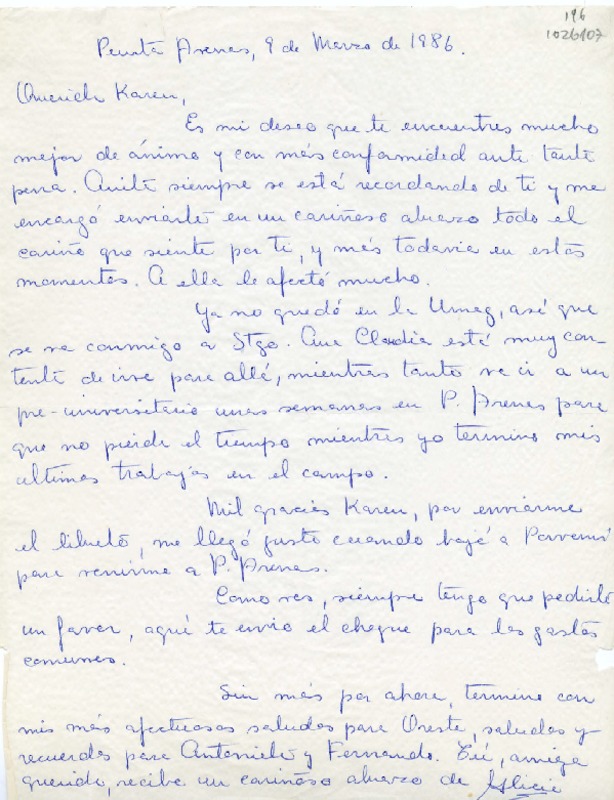 196
1026107
Punta Arenas, 9 de Marzo de 1986.
Querida Karen,
Es mi deseo que te encuentres mucho
mejor de ánimo y con más conformidad ante tanta
pena. Anita siempre se está recordando de ti y me
encargó enviarte en un cariñoso abrazo todo el
cariño que siente por ti, y más todavía en estos
momentos. A ella le afectó mucho.
Ya no quedó en la Umag, así que
se va conmigo a Stgo. Ana Claudia está muy con-
tenta de irse para allá, mientras tanto va ir a un
pre-universitario unas semanas en P. Arenas para
que no pierda el tiempo mientras yo termino mis
ultimos trabajos en el campo.
Mil gracias Karen, por enviarme
el libreto, me llegó justo cuando bajé a Porvenir
para venirme a P. Arenas.
Como ves, siempre tengo que pedirte
un favor, aquí te envio el cheque para los gastos
comunes.
Sin más por ahora, termino con
mis más afectuosos saludos para Oreste, saludos y
recuerdos para Antonieta y Fernando. Tú, amiga
querida, recibe un cariñoso abrazo de Alicia